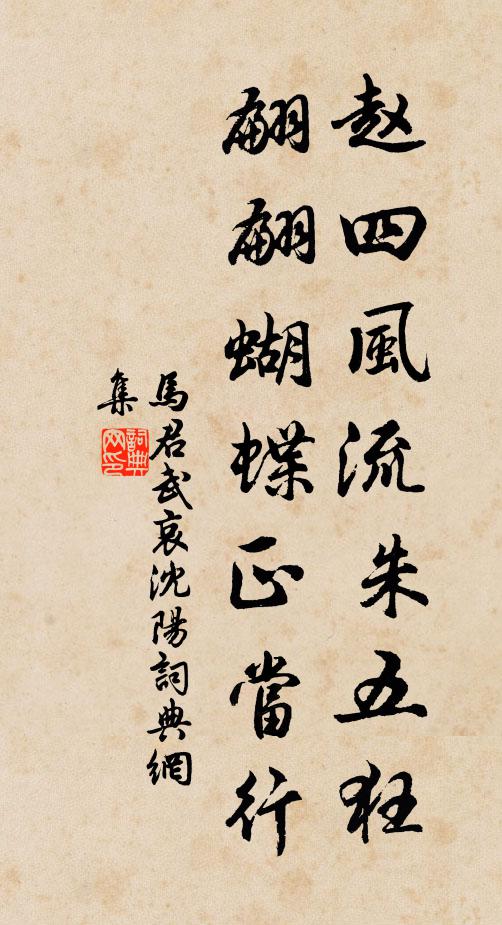 赵四風流朱五狂
翩翩蝴蝶正當行
馬君武哀沈陽詞典網
集
詞典
网印